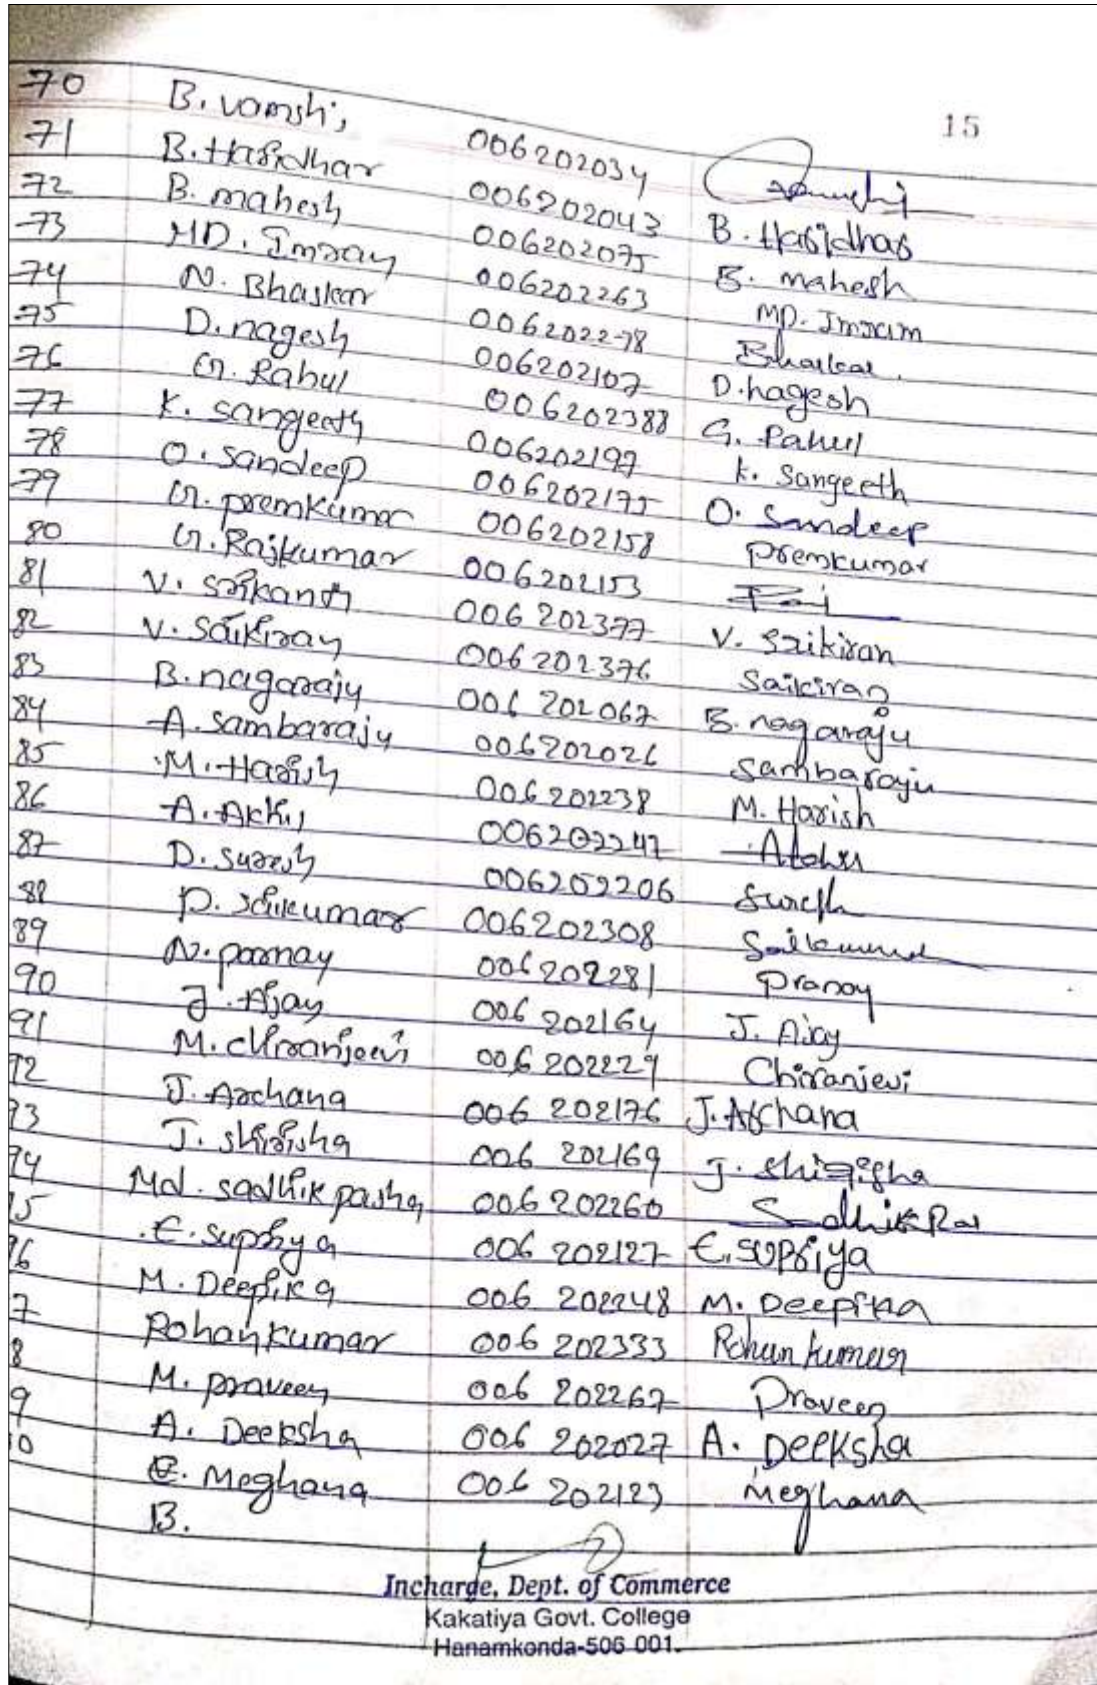 15
70 B. vamshi, 006202034
71 B. Haridhar 006202043 B. Haridhar
72 B. mahesh 006202075 B. mahesh
73 MD. Imran 006202263 MD. Imram
74 N. Bhaskar 006202278 Bhaskar.
75 D. nagesh 006202107 D. nagesh
76 G. Rahul 006202388 G. Rahul
77 K. sangeeth 006202197 K. Sangeeth
78 O. sandeep 006202175 O. Sandeep
79 G. premkumar 006202158 premkumar
80 G. Rajkumar 006202153 Raj
81 V. Srikanth 006202377 V. Srikiran
82 V. Saikiran 006202376 Saikiran
83 B. nagaraju 006202067 B. nagaraju
84 A. Sambaraju 006202026 Sambaraju
85 M. Harish 006202238 M. Harish
86 A. Akhil 006202247
87 D. Suresh 006202206 Suresh
88 P. Saikumar 006202308 Saikumar
89 N. pranay 006202281 Pranay
90 J. Ajay 006202164 J. Ajay
91 M. chiranjeevi 006202229 Chiranjevi
92 J. Archana 006202176 J. Archana
93 J. shirisha 006202169 J. Shirisha
94 Md. sadhik pasha 006202260 Sadhik Pa
95 E. supriya 006202127 E. SUPRiya
96 M. Deepika 006202248 M. Deepika
7 Rohankumar 006202333 Rohan kumar
8 M. praveen 006202267 Praveen
9 A. Deeksha 006202027 A. Deeksha
10 E. Meghana 006202123 Meghana
B.
Incharge, Dept. of Commerce
Kakatiya Govt. College
Hanamkonda-506 001.